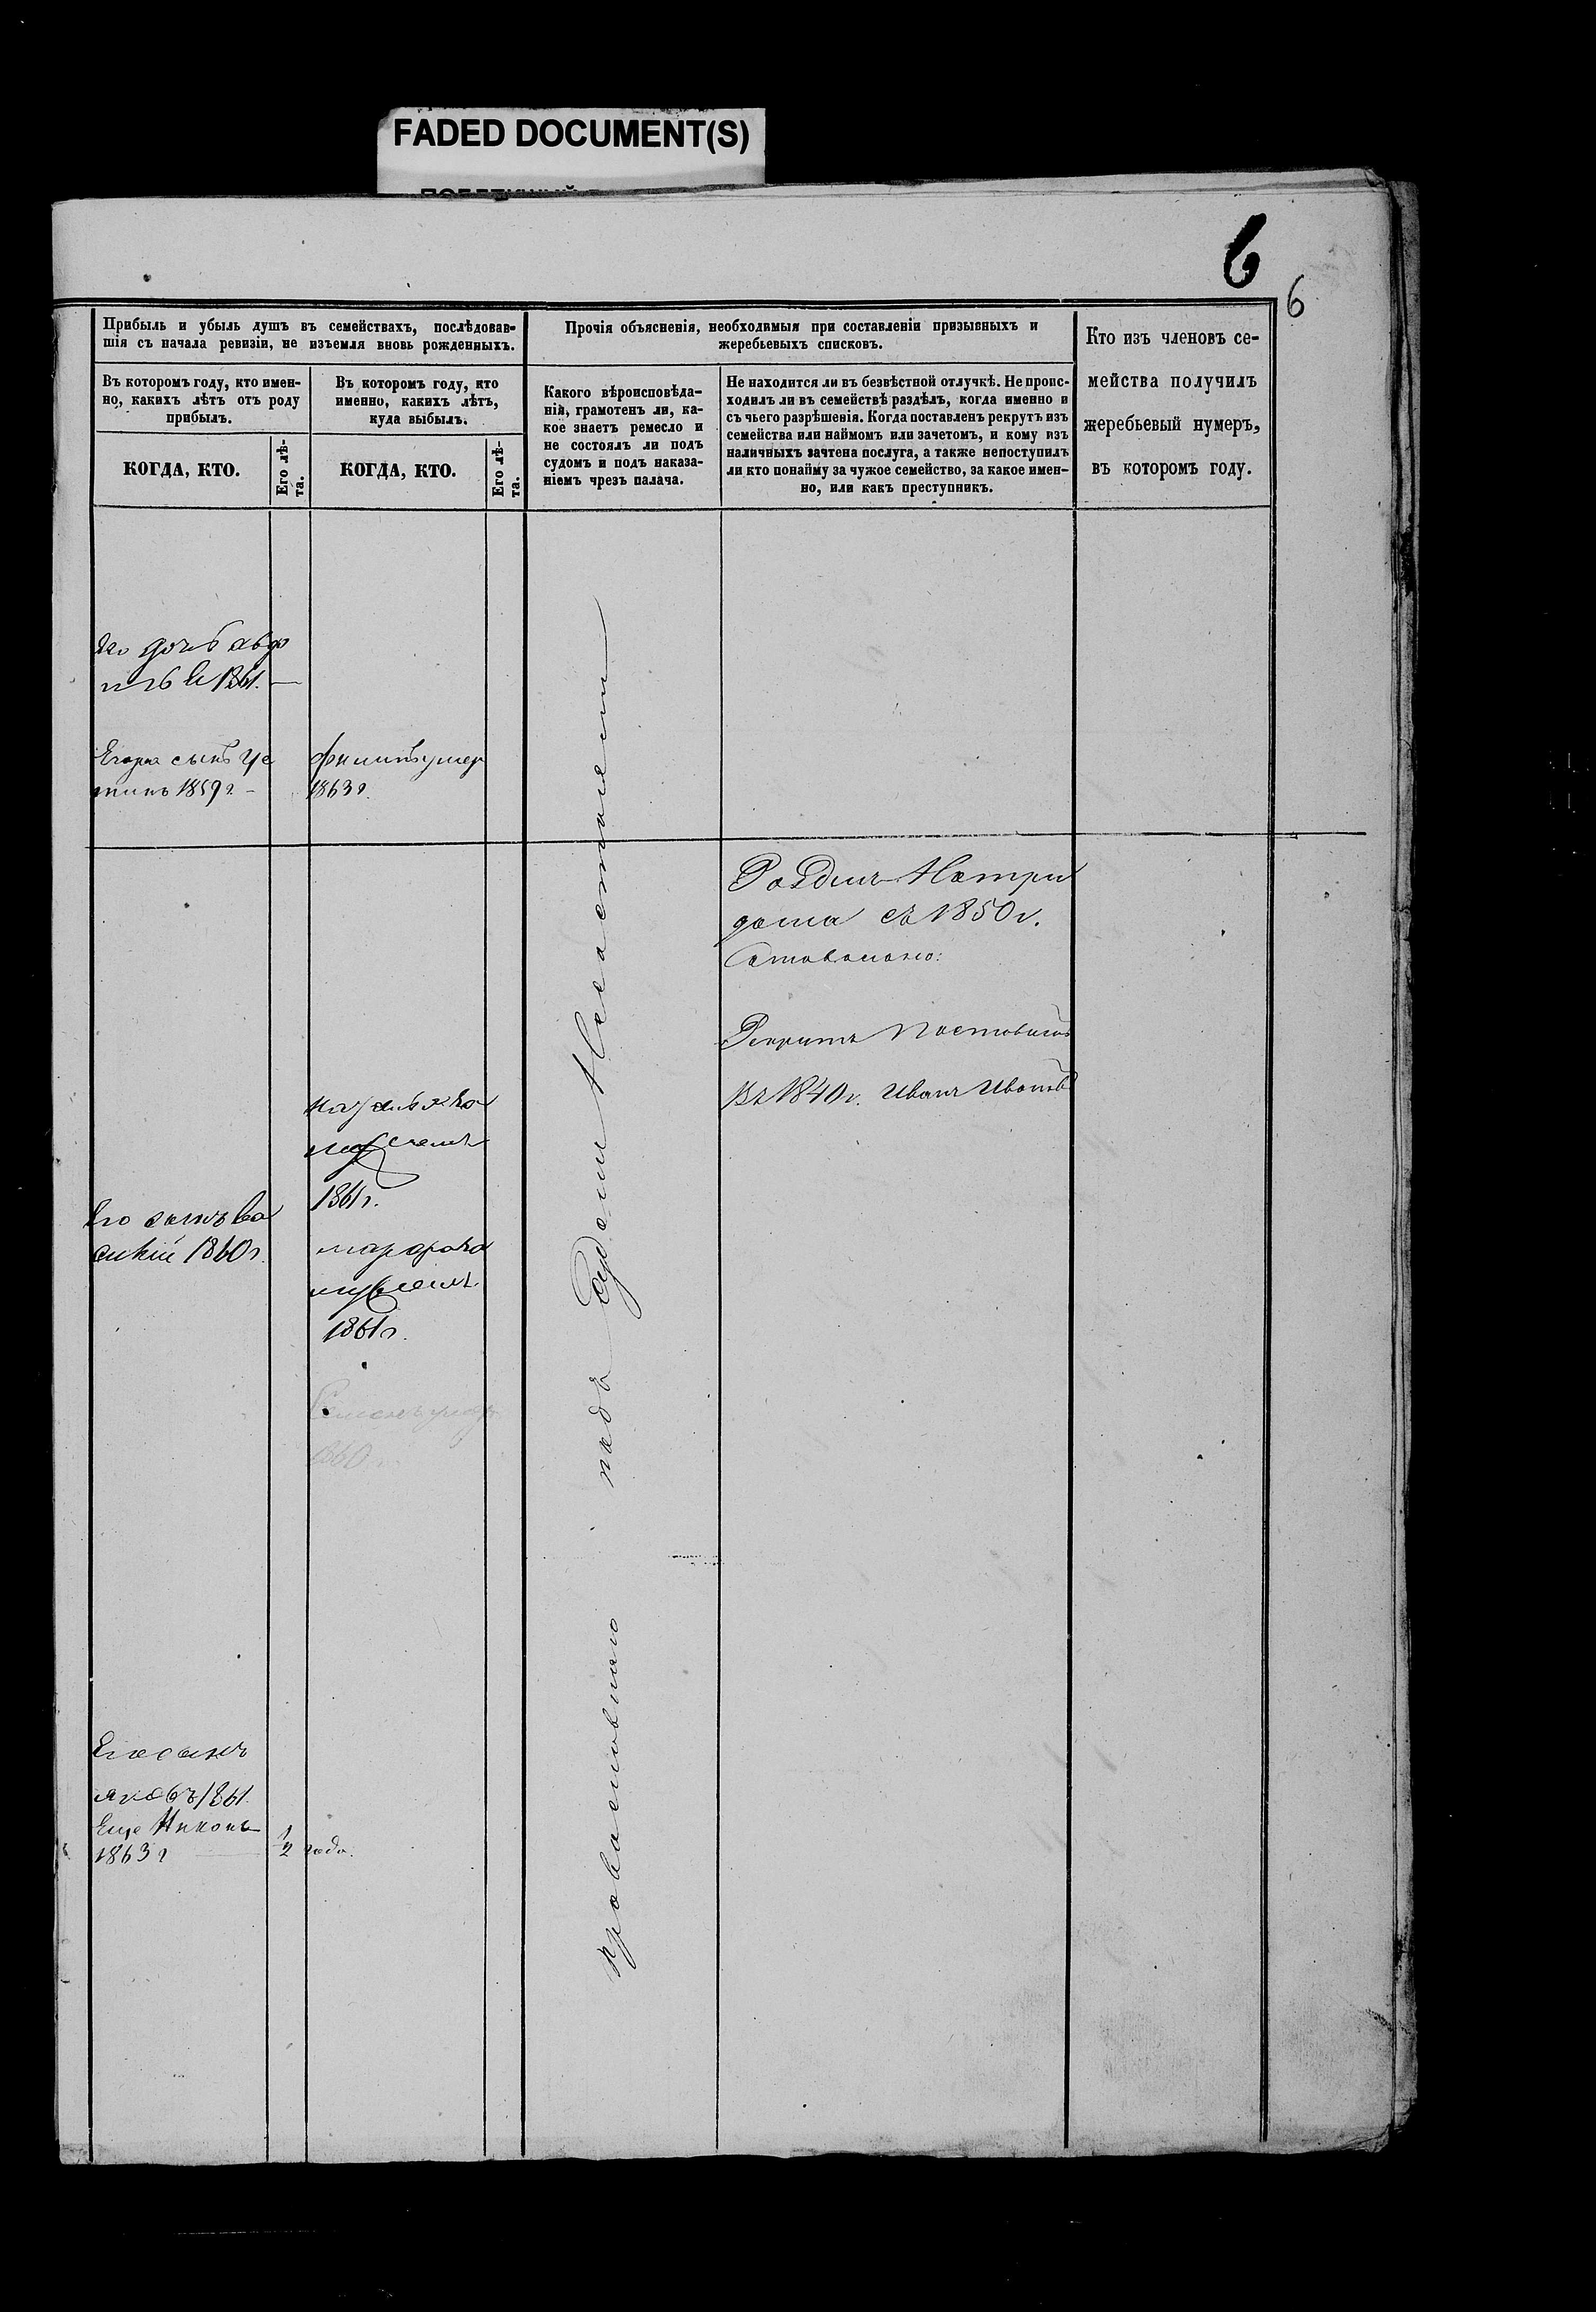 FADED DOCUMENT(S)
6
6
Прибыль и убыль душъ въ семействахъ, послѣдовав-
шія съ начала ревизіи, не изъемля вновь рожденныхъ.
Въ которомъ году, кто имен-
но, какихъ лѣтъ отъ роду
прибылъ.
КОГДА, КТО.
Его лѣ-
та.
Въ которомъ году, кто
именно, какихъ лѣтъ,
куда выбылъ.
КОГДА, КТО.
Его лѣ-
та.
Прочія объясненія, необходимыя при составленіи призывныхъ и
жеребьевыхъ списковъ.
Какого вѣроисповѣда-
нія, грамотенъ ли, ка-
кое знаетъ ремесло и
не состоялъ ли подъ
судомъ и подъ наказа-
ніемъ чрезъ палача.
Не находится ли въ безвѣстной отлучкѣ. Не проис-
ходилъ ли въ семействѣ раздѣлъ, когда именно и
съ чьего разрѣшенія. Когда поставленъ рекрутъ изъ
семейства или наймомъ или зачетомъ, и кому изъ
наличныхъ зачтена послуга, а также непоступилъ
ли кто понайму за чужое семейство, за какое имен-
но, или какъ преступникъ.
Кто изъ членовъ се-
мейства получилъ
жеребьевый нумеръ,
въ которомъ году.
дочь
1861.
Егора сынъ Ус
тинъ 1859 г
умер
1863 г.
1850 г.
въ 1840 г. Иванъ Ивановъ
1861 г.
Его сынъ Ва
силій 1860 г.
1861 г.
Семенъ умеръ
1860 г.
Его сынъ
Яковъ 1861
Еще Никонъ
1863 г
1/2 года.
православнаго подъ судомъ